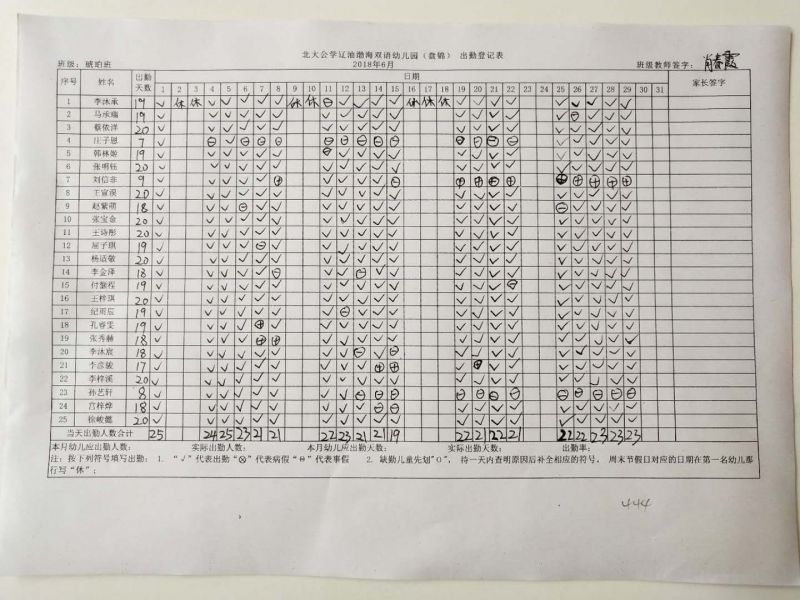 北大公学辽油渤海双语幼儿园（盘锦） 出勤登记表
班级：琥珀班 2018年6月 班级教师签字：
序号 姓名 出勤天数 日期 家长签字
1 2 3 4 5 6 7 8 9 10 11 12 13 14 15 16 17 18 19 20 21 22 23 24 25 26 27 28 29 30 31
1 李沐承 19 √ 休 休 √ √ √ √ √ 休 休 ⊖ √ √ √ √ 休 休 休 √ √ √ √ √ √ √ √ √
2 马承瑞 19
3 蔡依洋 20
4 庄子恩 7
5 韩林姬 19
6 张明钰 20
7 刘信非 9
8 王宣淏 20
9 赵紫萌 18
10 张宝金 20
11 王诗彤 20
12 屈子琪 19
13 杨适敬 20
14 李金泽 18
15 付馨程 19
16 王梓琪 20
17 纪雨辰 19
18 孔睿雯 19
19 张秀赫 18
20 李沐宸 18
21 李彦毓 17
22 李梓溪 20
23 孙艺轩 8
24 宫梓烨 18
25 徐峻懿 20
当天出勤人数合计 25 24 25 23 21 21 22 23 21 21 19 22 21 22 21 22 22 23 23 23
本月幼儿应出勤人数： 实际出勤人数： 本月幼儿应出勤天数： 实际出勤天数： 出勤率：
注：按下列符号填写出勤：1. “√”代表出勤“⊗”代表病假“⊖”代表事假 2. 缺勤儿童先划"○"， 待一天内查明原因后补全相应的符号。 周末节假日对应的日期在第一名幼儿那
行写“休”；
444